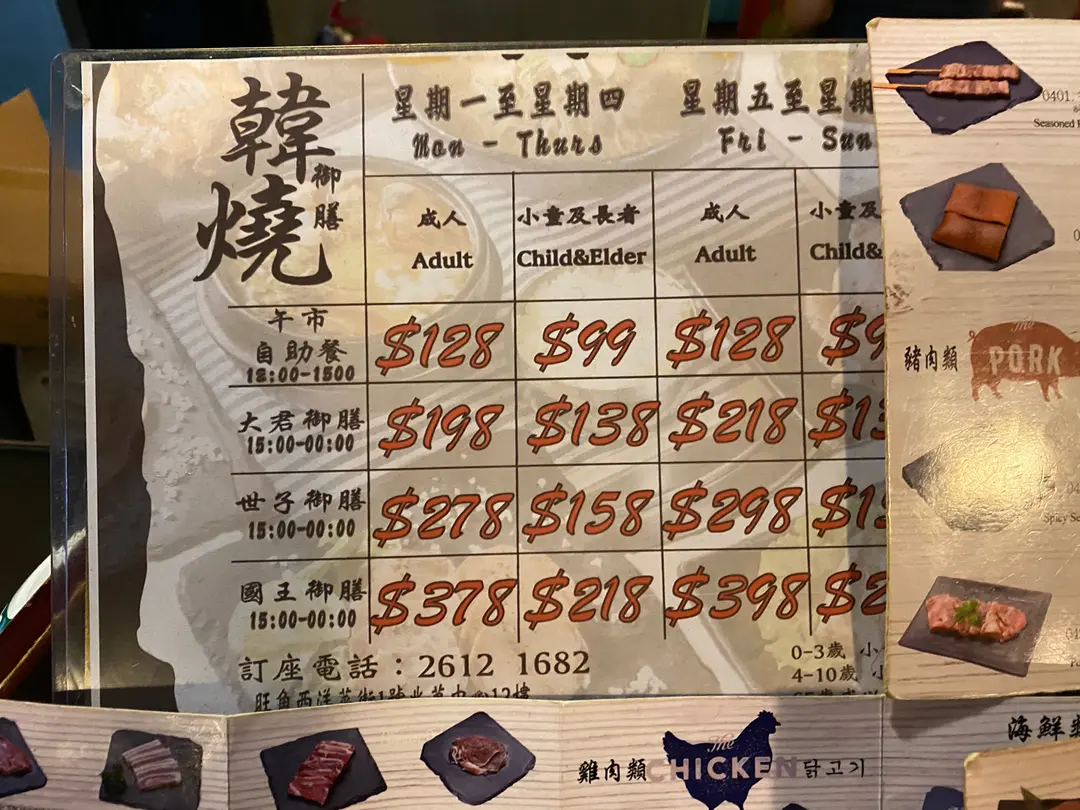 韓燒
御膳
星期一至星期四
Mon - Thurs
星期五至星期
Fri - Sun
成人
Adult
小童及長者
Child&Elder
成人
Adult
小童及
Child&
午市
自助餐
12:00-1500
$128 $99 $128 $9
大君御膳
15:00-00:00
$198 $138 $218 $13
世子御膳
15:00-00:00
$278 $158 $298 $1
國王御膳
15:00-00:00
$378 $218 $398 $2
訂座電話：2612 1682
0-3歲 小
4-10歲
0401.
Seasoned
豬肉類
The
PORK
Spicy Se
雞肉類
The
CHICKEN
닭고기
海鮮類